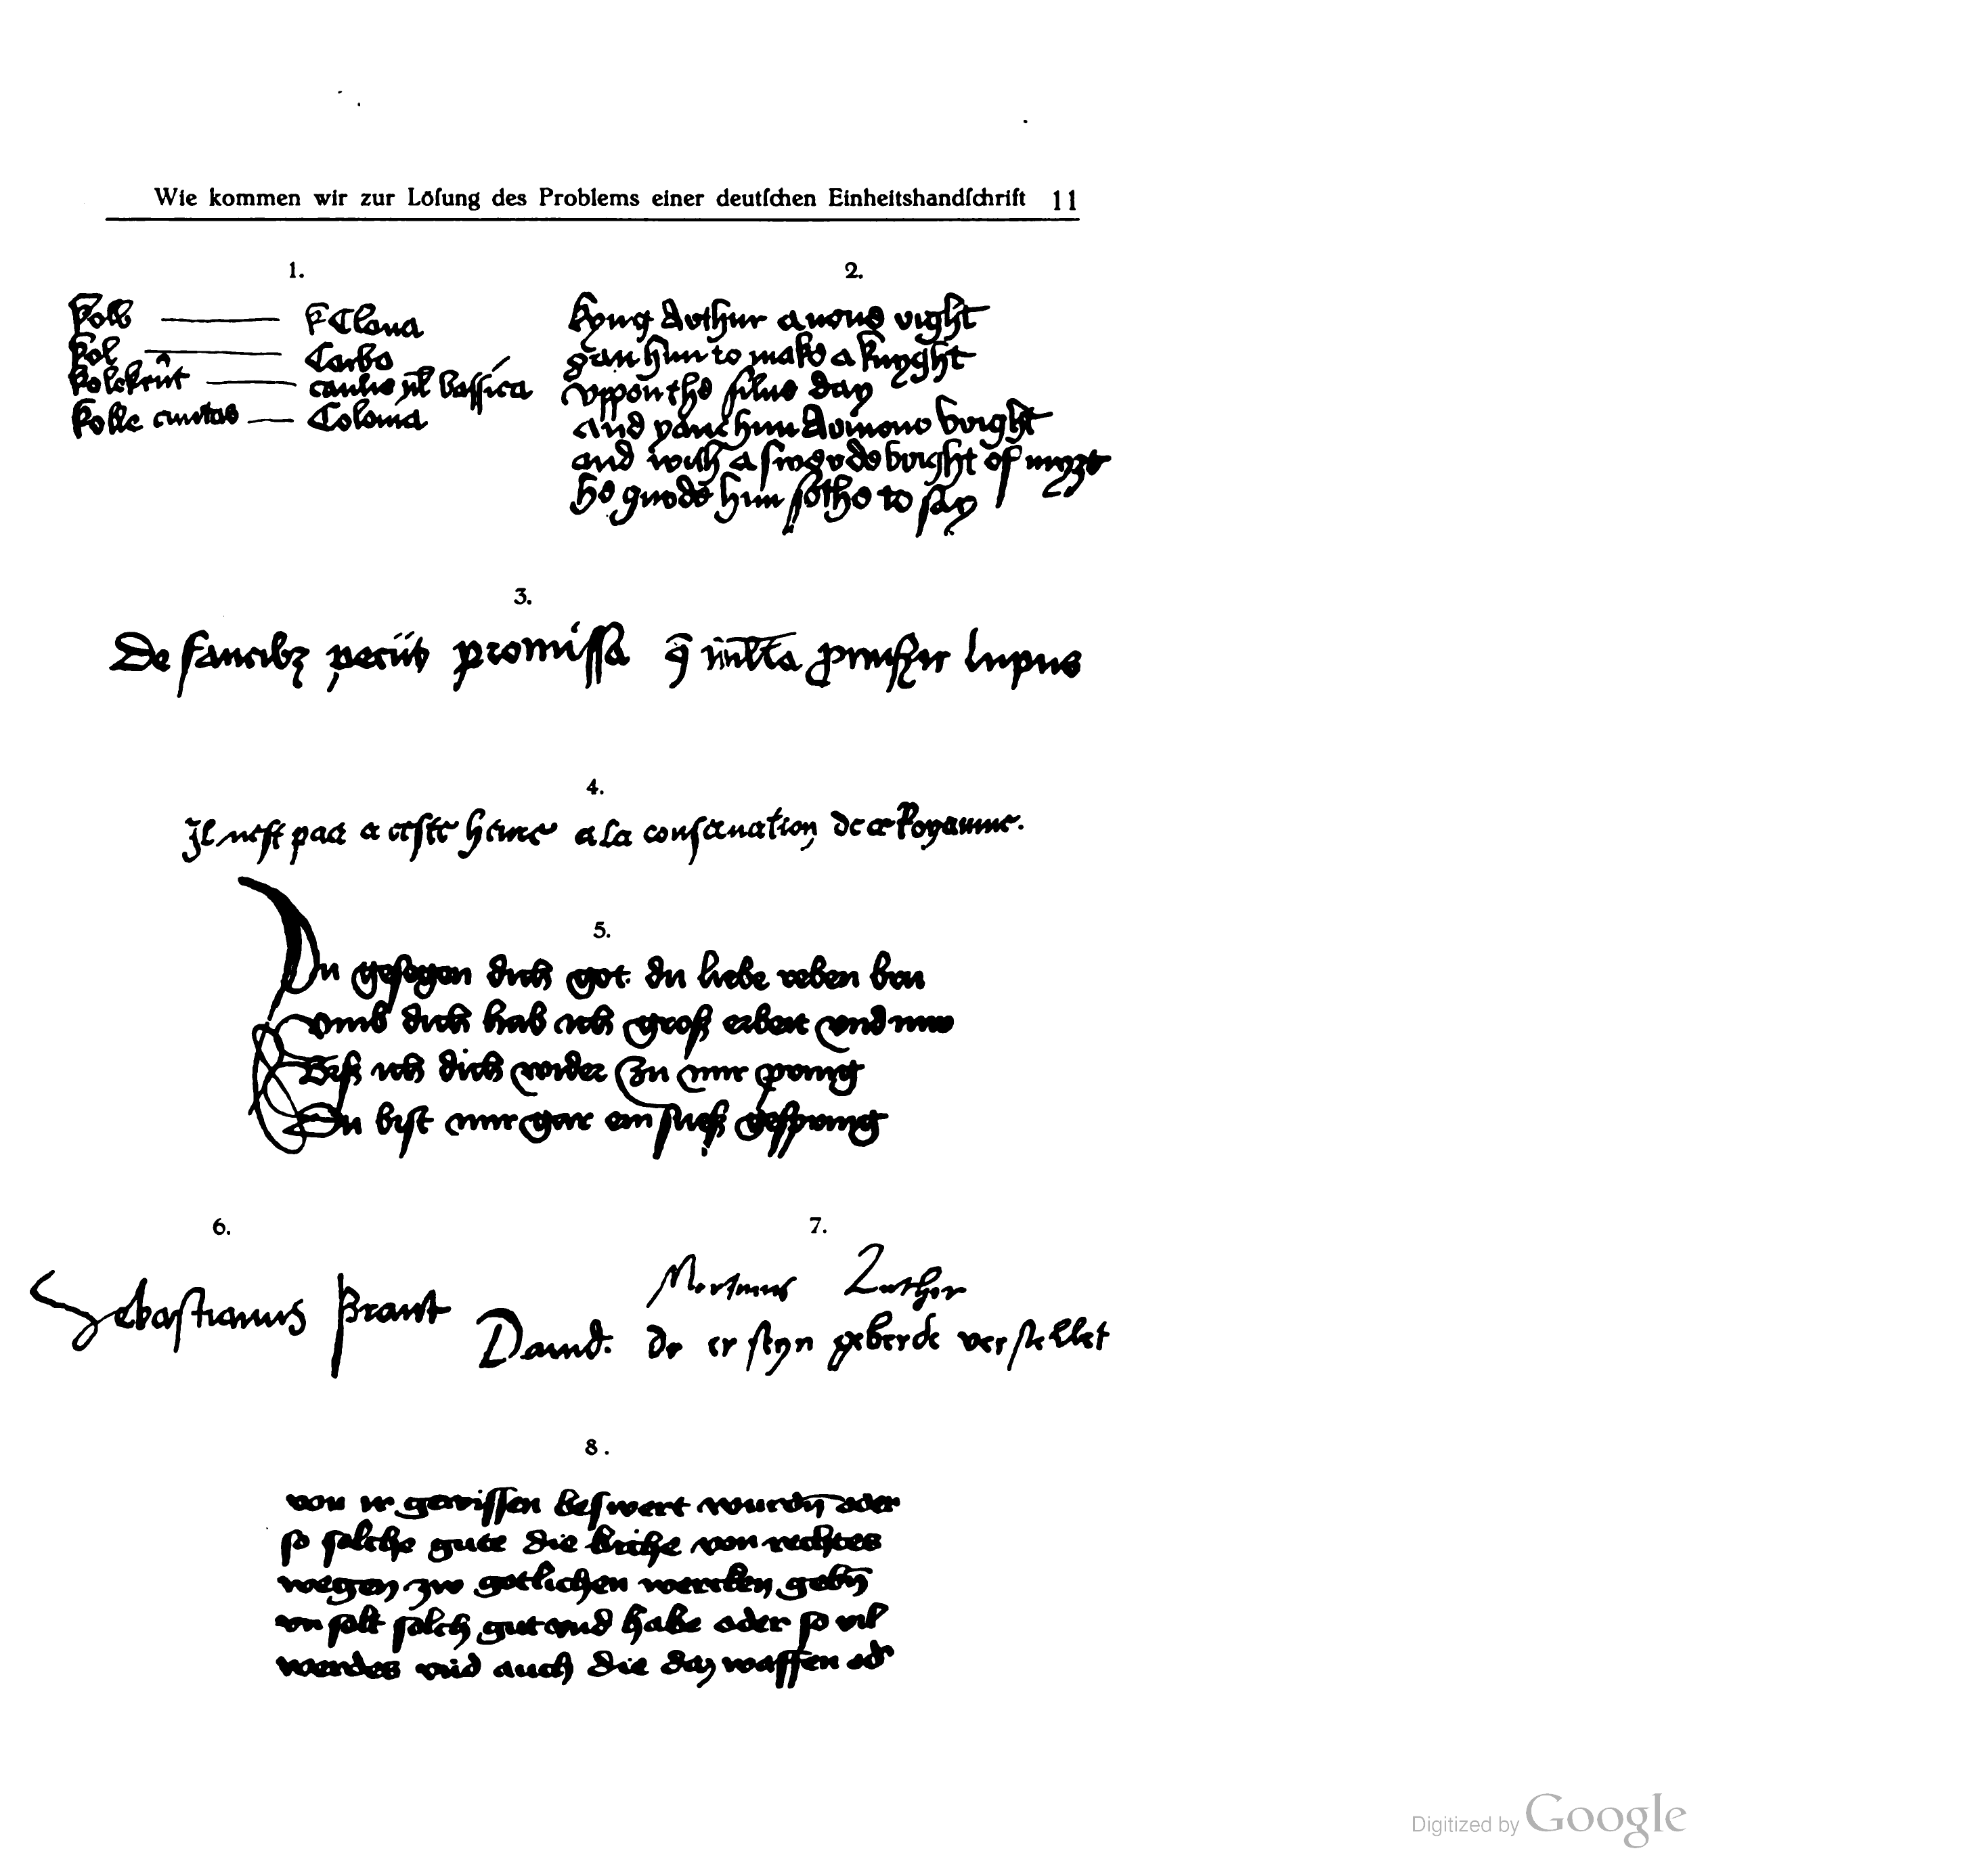 Wie kommen wir zur Löſung des Problems einer deutſchen Einheitshandſchrift 11
1.
Kolb
Kol Carbo
Kolckrut
Colonia
2.
Kyng Arthur anone right
gan him to make a knyght
uppon the silue day
and yaue him Armone bright
and with a swerde bright of myȝt
he gurde him sothe to say
3.
De faucibz petiit promissa lupus
4.
Il nest pas a ceste heure a la conseruation de ce Royaume.
5.
Du gesegen dich got du liebe reben bru
umb dich hab ich groß erbert und muv
Das ich dich wider Zu mir pring
Du byst mir gar ein sueß gespring
6.
Sebastianus Brant
7.
Martinus Luther
Dauid. der er seyn geberde verstellet
8.
von ir gewissen beswert wurdn oder
so solche gute die kirche von rechtes
wegen zw gotlichen wercken gebn
un solt solch gut und habe oder so vil
werdes und auch die day waffen od
Digitized by Google